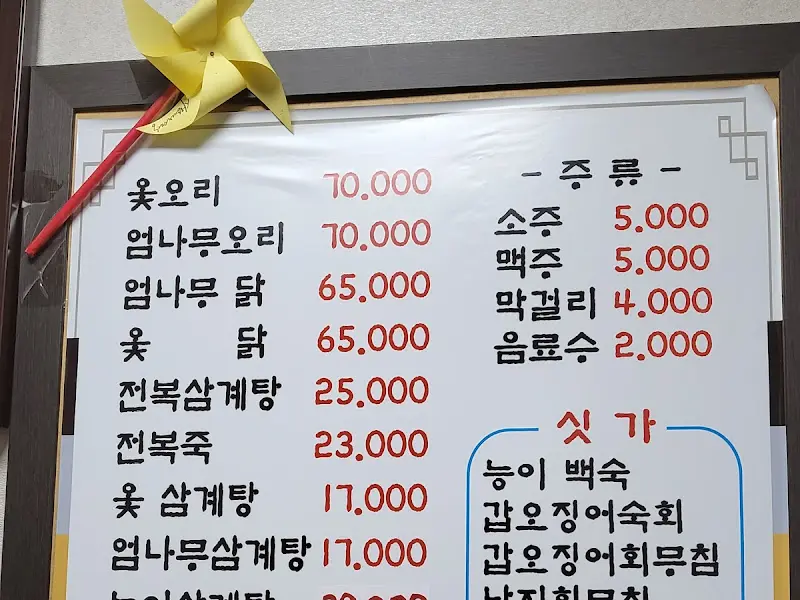 옻오리 70.000
엄나무오리 70.000
엄나무 닭 65.000
옻 닭 65.000
전복삼계탕 25.000
전복죽 23.000
옻 삼계탕 17.000
엄나무삼계탕 17.000
- 주 류 -
소주 5.000
맥주 5.000
막걸리 4.000
음료수 2.000
싯 가
능이 백숙
갑오징어숙회
갑오징어회무침